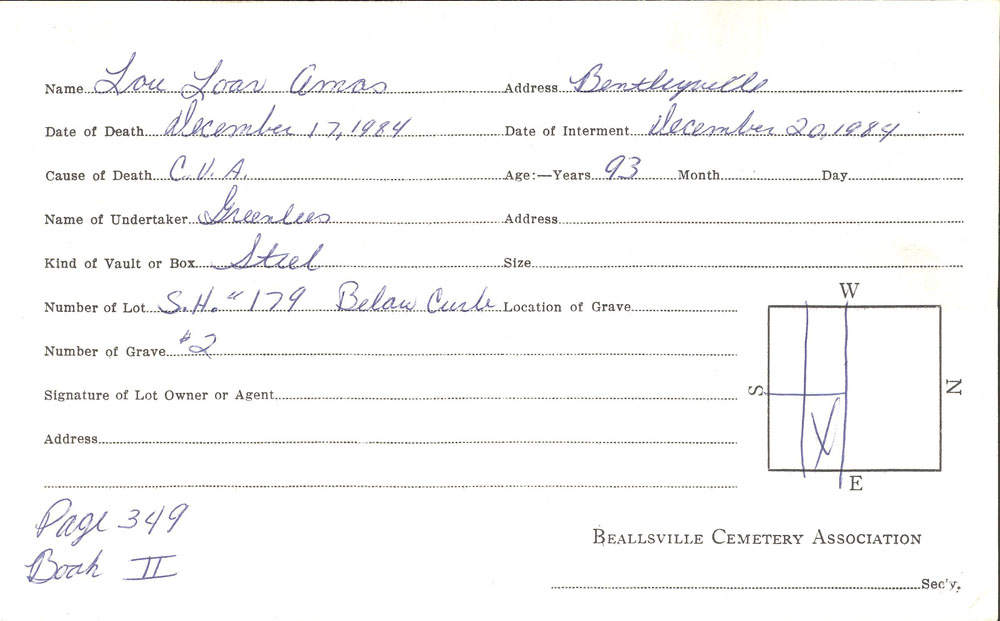 Name Lou Loar Amos Address Bentleyville
Date of Death December 17, 1984 Date of Interment December 20, 1984
Cause of Death C.V.A. Age:—Years 93 Month Day
Name of Undertaker Greenlees Address
Kind of Vault or Box Steel Size
Number of Lot S.H. " 179 Below Curb Location of Grave
W
Number of Grave #2
S N
Signature of Lot Owner or Agent
Address
E
Page 349
Book II
BEALLSVILLE CEMETERY ASSOCIATION
Sec'y.